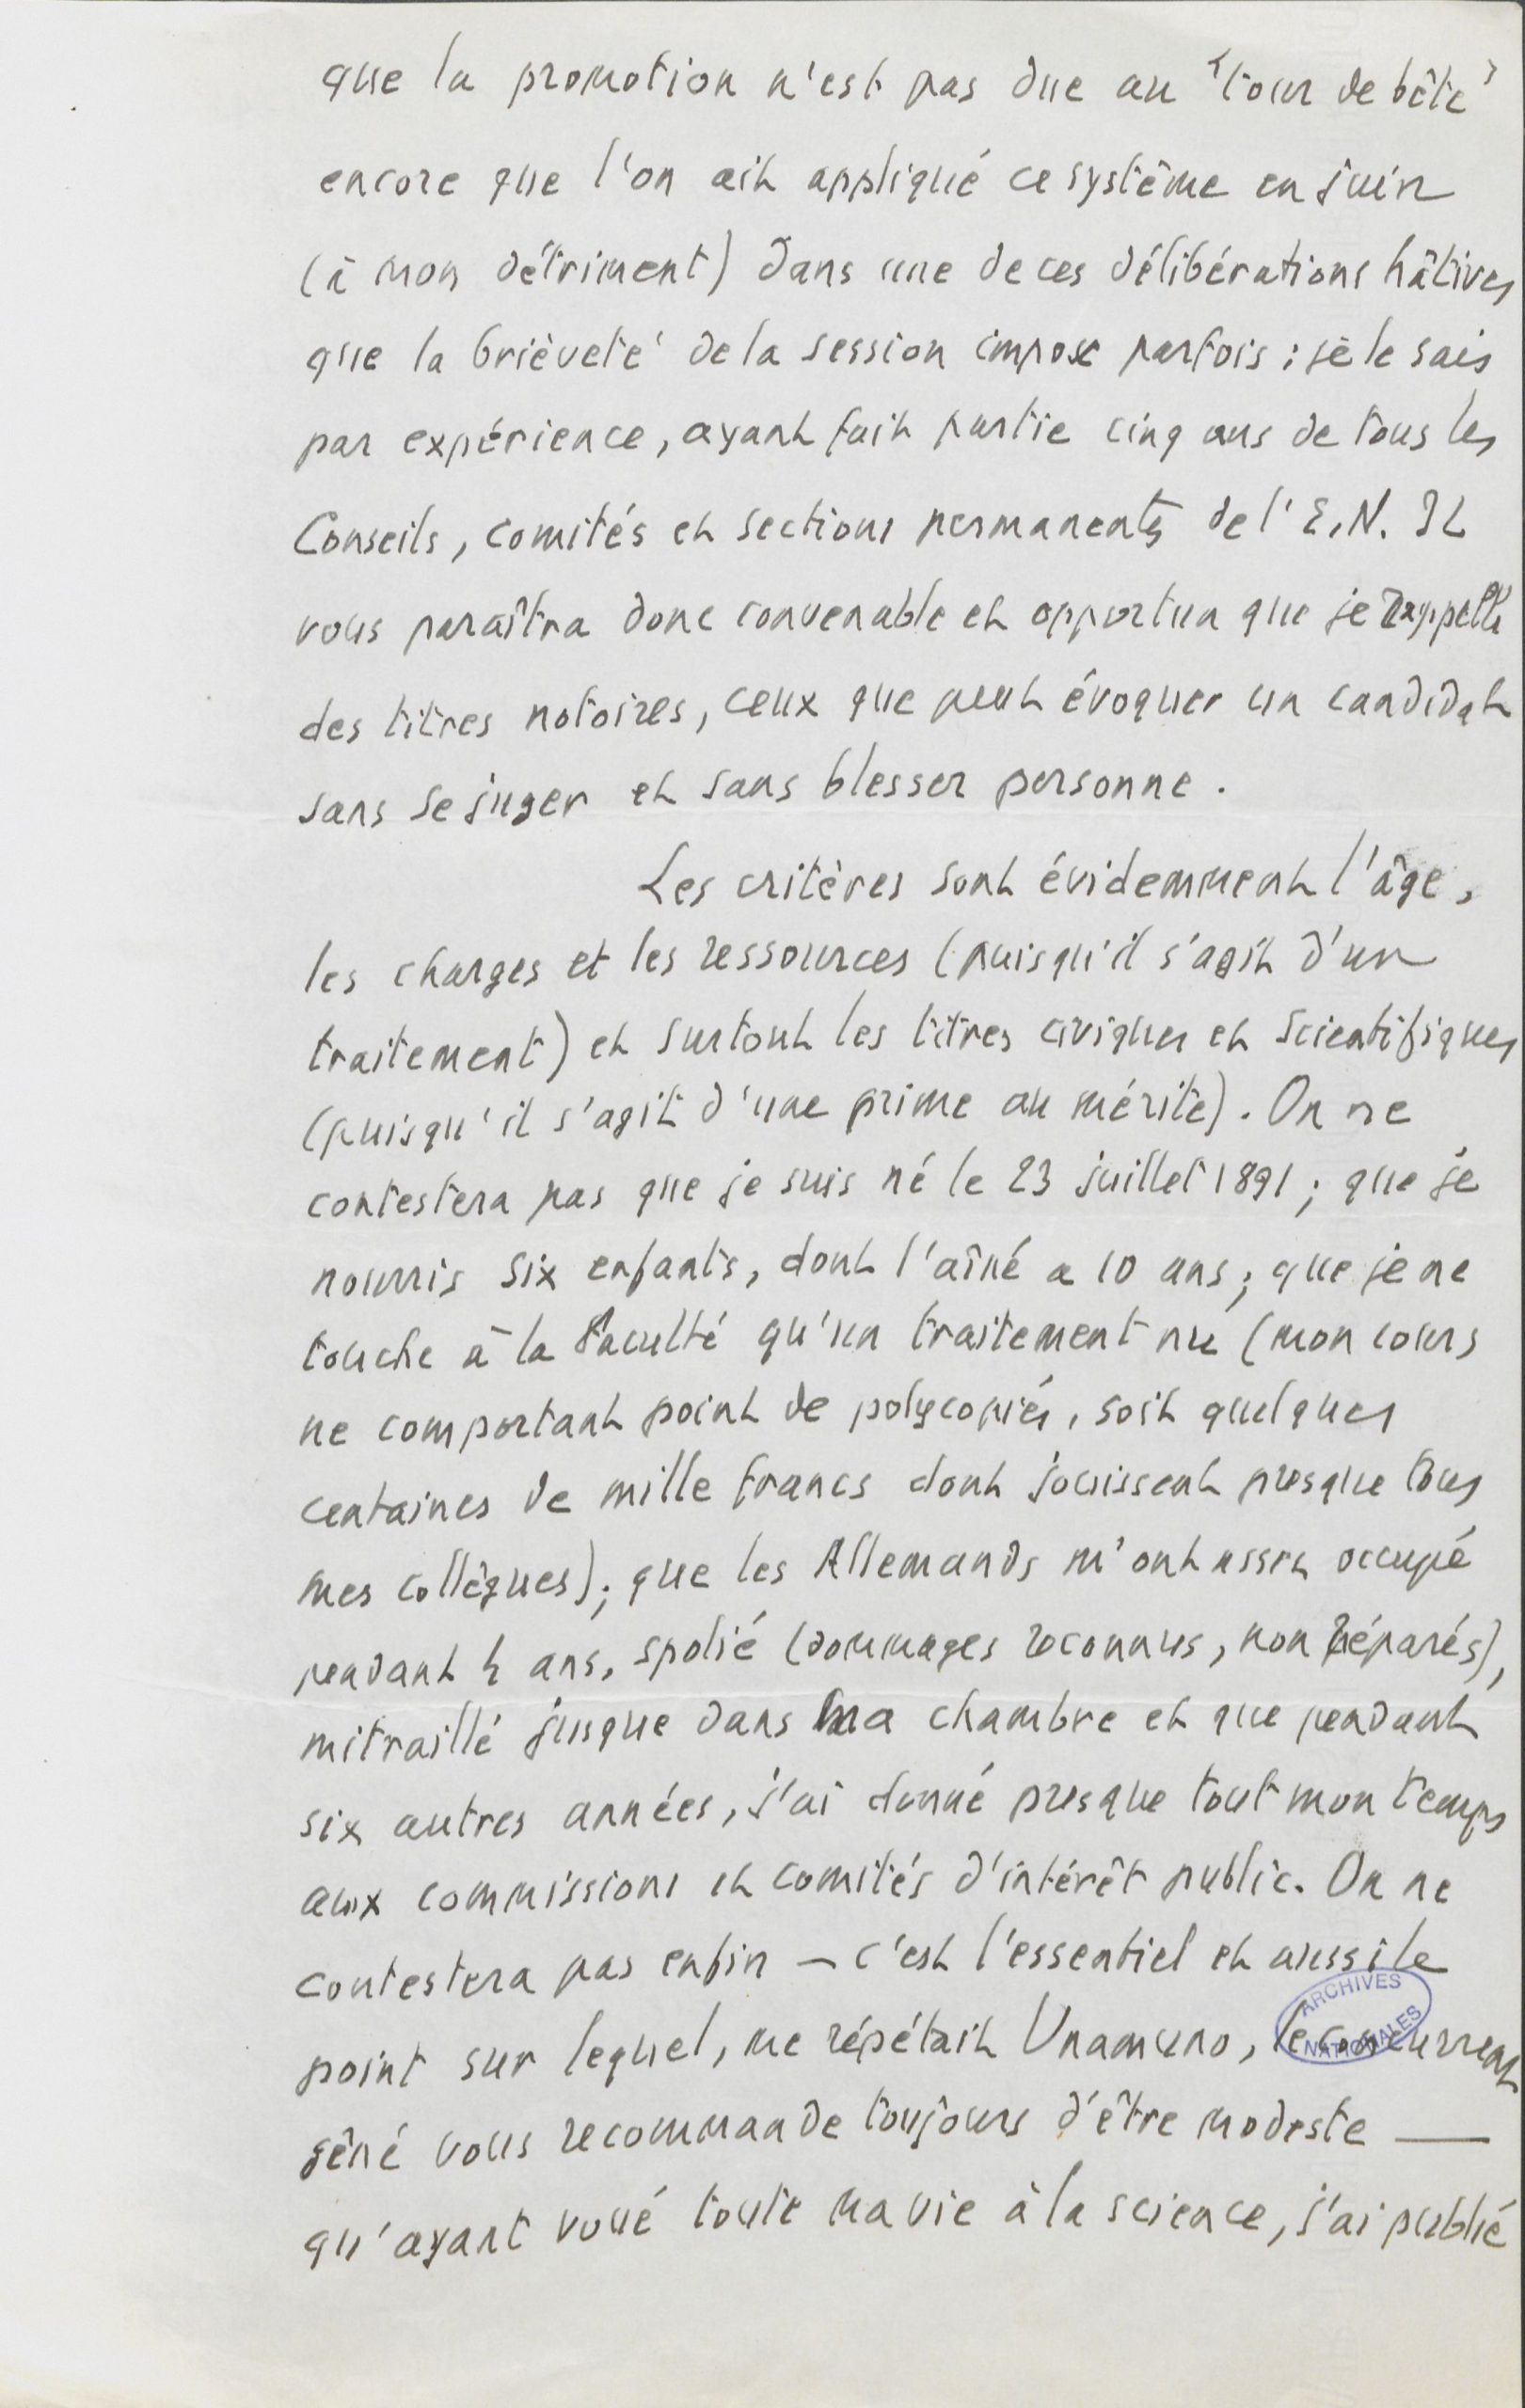 que la promotion n'est pas due au "tour de bête"
encore que l'on ait appliqué ce système en juin
(à mon détriment) dans une de ces délibérations hâtives
que la brièveté de la session impose parfois : je le sais
par expérience, ayant fait partie cinq ans de tous les
Conseils, comités et sections permanents de l'E.N. Il
vous paraîtra donc convenable et opportun que je rappelle
des titres notoires, ceux que peut évoquer un candidat
sans se juger et sans blesser personne.
Les critères sont évidemment l'âge,
les charges et les ressources (puisqu'il s'agit d'un
traitement) et surtout les titres civiques et scientifiques
(puisqu'il s'agit d'une prime au mérite). On ne
contestera pas que je suis né le 23 juillet 1891 ; que je
nourris six enfants, dont l'aîné a 10 ans ; que je ne
touche à la Faculté qu'un traitement nu (mon cours
ne comportant point de polycopiés, soit quelques
centaines de mille francs dont jouissent presque tous
mes collègues) ; que les Allemands m'ont assez occupé
pendant 4 ans, spolié (dommages reconnus, non réparés),
mitraillé jusque dans ma chambre et que pendant
six autres années, j'ai donné presque tout mon temps
aux commissions et comités d'intérêt public. On ne
contestera pas enfin — c'est l'essentiel et aussi le
point sur lequel, me répétait Unamuno, le concurrent
gêné vous recommande toujours d'être modeste —
qu'ayant voué toute ma vie à la science, j'ai publié
ARCHIVES
NATIONALES